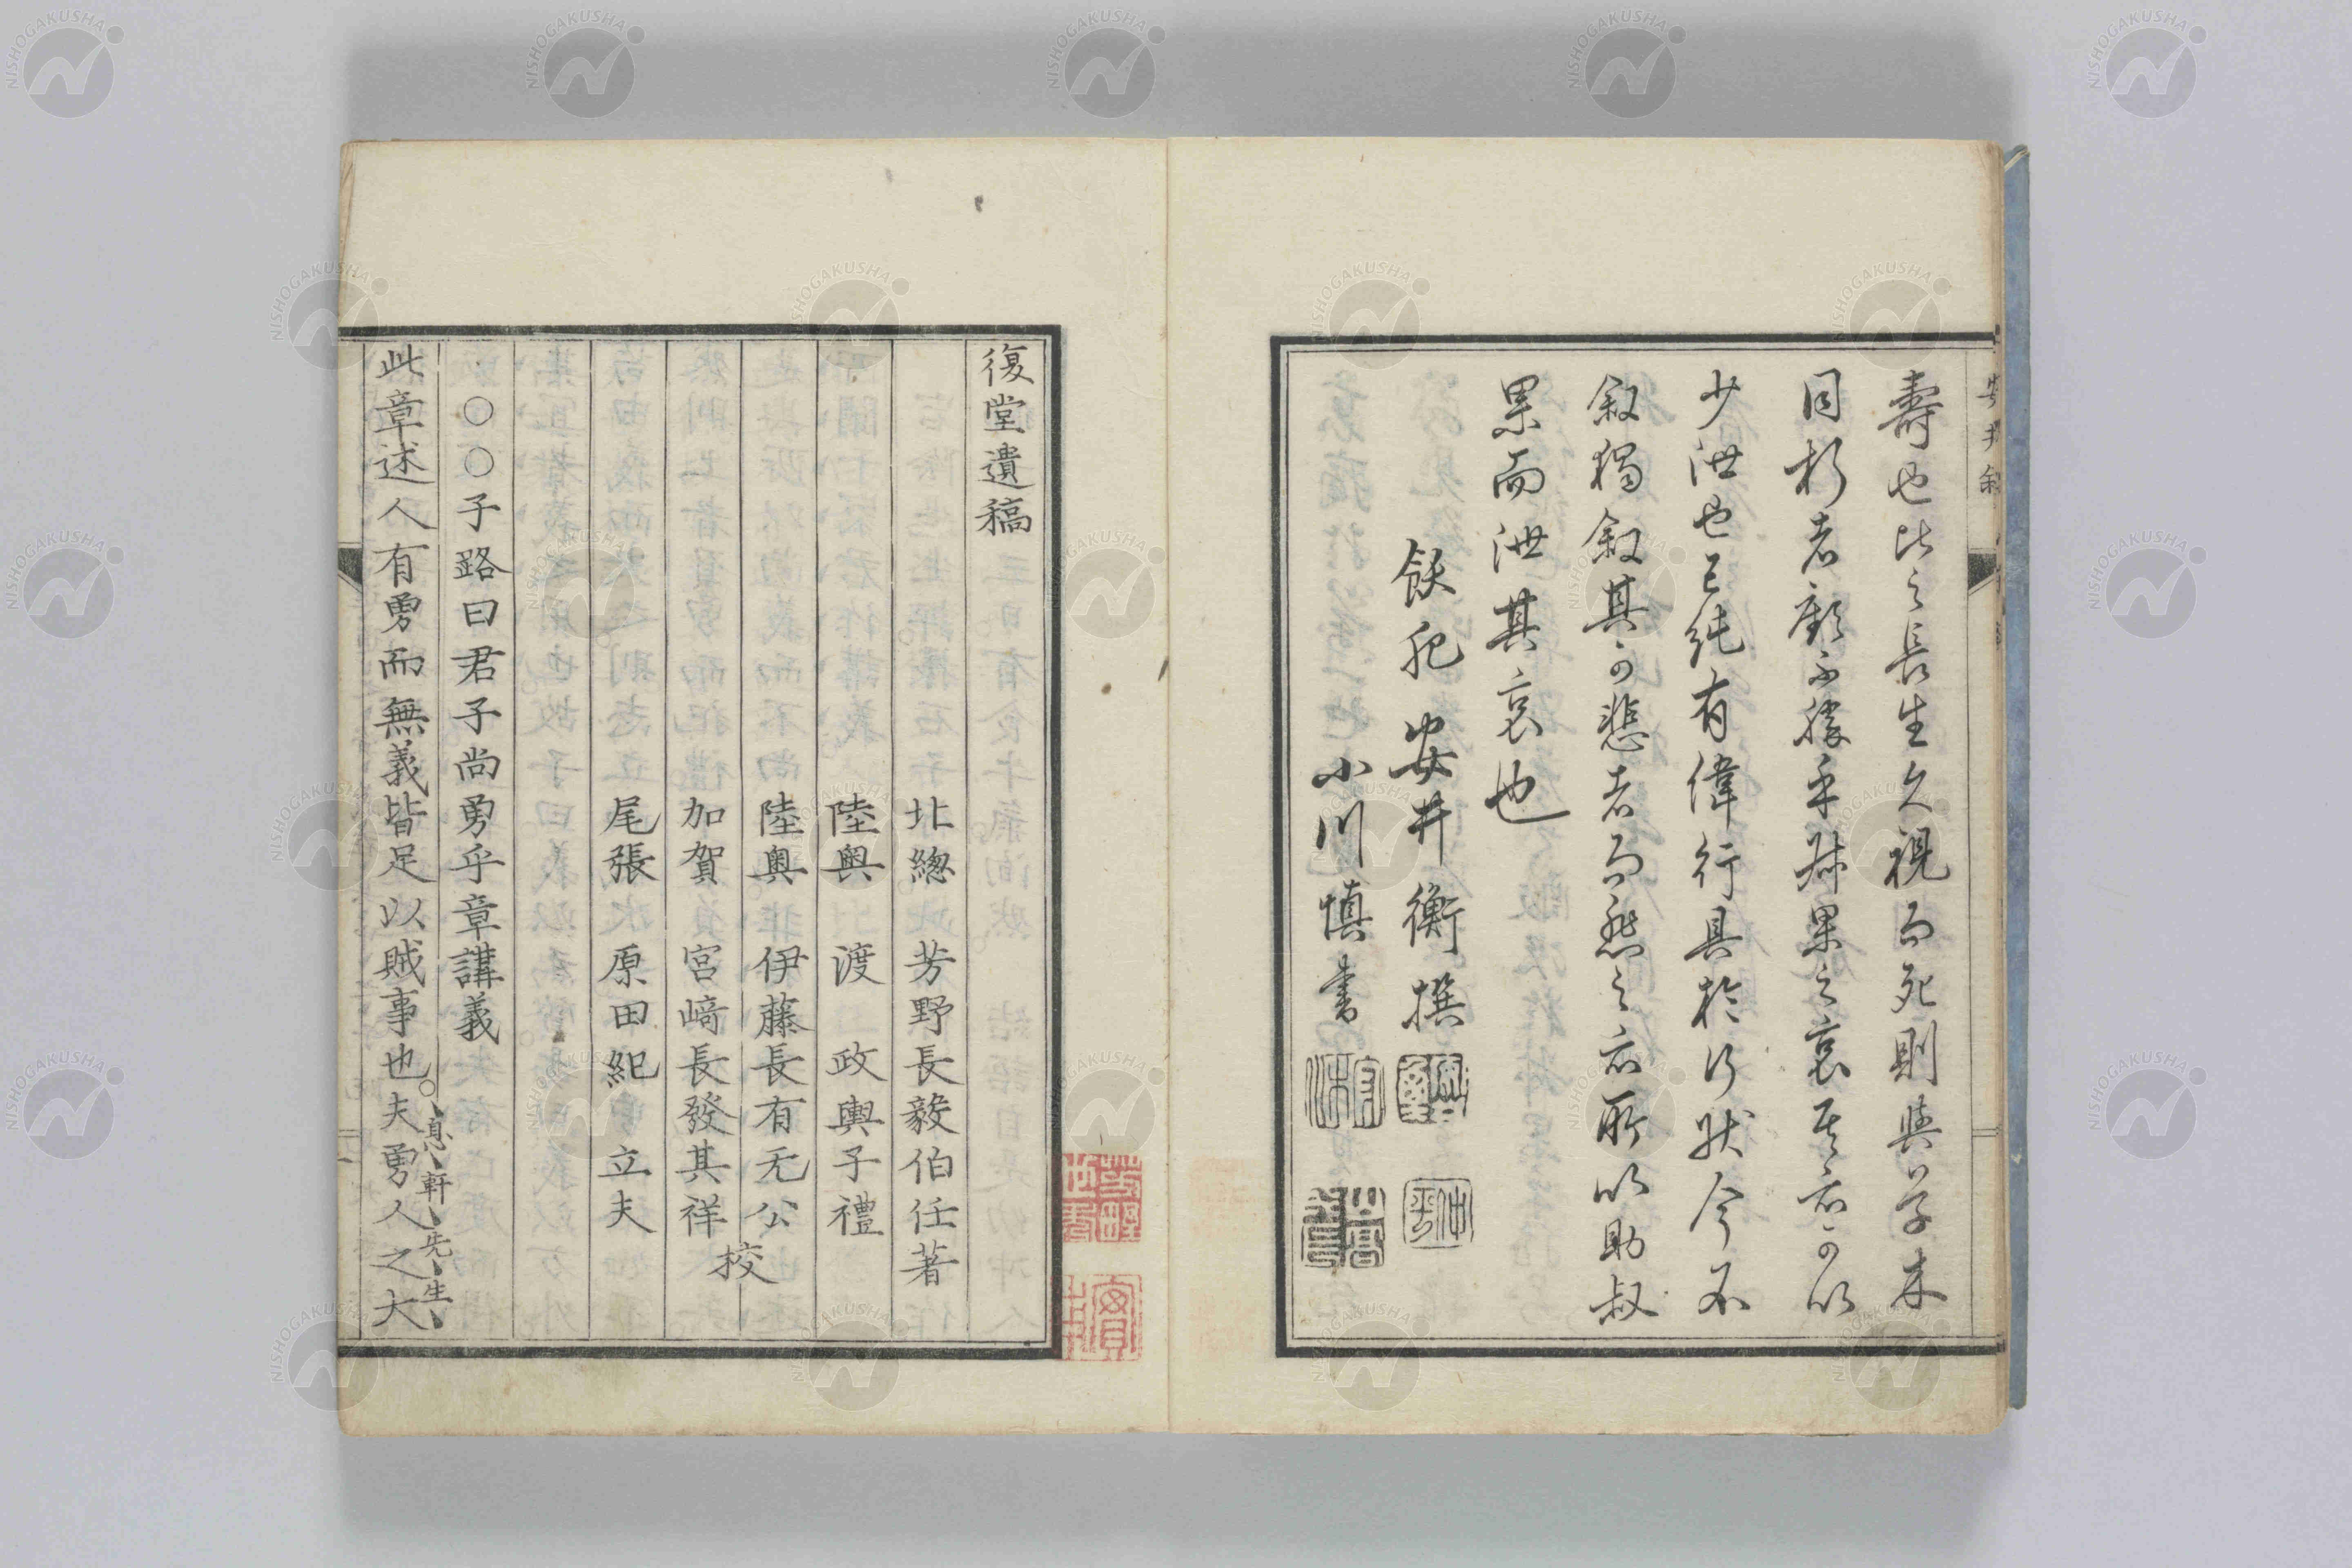 壽也比之長生久視而死則與草木
同朽者顧不勝乎叔果之哀其亦可以
少泄也已純有偉行具於行狀今不
敘獨敘其可悲者而慭之亦所以助叔
果而泄其哀也
飫肥 安井衡撰
小川慎書
復堂遺稿
北總 芳野長毅伯任著
陸奧 渡 政輿子禮
陸奧 伊藤長有无公
加賀 宮﨑長發其祥
校
尾張 原田紀 立夫
○○子路曰君子尚勇乎章講義
息軒先生
此章述人有勇而無義皆足以賊事也夫勇人之大
NISHOGAKUSHA